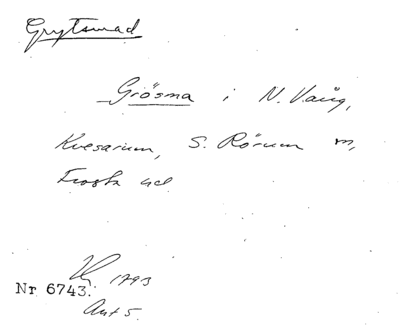 Grytsmad
Grösma i N. Vång,
Kvesarum, S. Rörum m,
Frosta hd
1793
Nr 6743.
Ant 5.